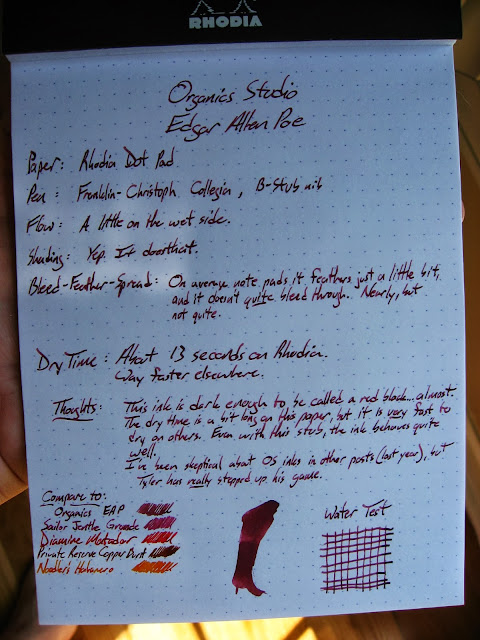 RHODIA
Organics Studio
Edgar Allen Poe
Paper: Rhodia Dot Pad
Pen: Franklin-Christoph Collegia, B-Stub nib
Flow: A little on the wet side.
Shading: Yep. It does that.
Bleed-Feather-Spread: On average note pads it feathers just a little bit,
and it doesn't quite bleed through. Nearly, but
not quite.
Dry Time: About 13 seconds on Rhodia.
Way faster elsewhere.
Thoughts: This ink is dark enough to be called a red black... almost.
The dry time is a bit long on this paper, but it is very fast to
dry on others. Even with this stub, the ink behaves quite
well.
I've been skeptical about OS inks in other posts (last year), but
Tyler has really stepped up his game.
Compare to:
Organics EAP
Sailor Jentle Grenade
Diamine Matador
Private Reserve Copper Burst
Noodler's Habanero
Water Test